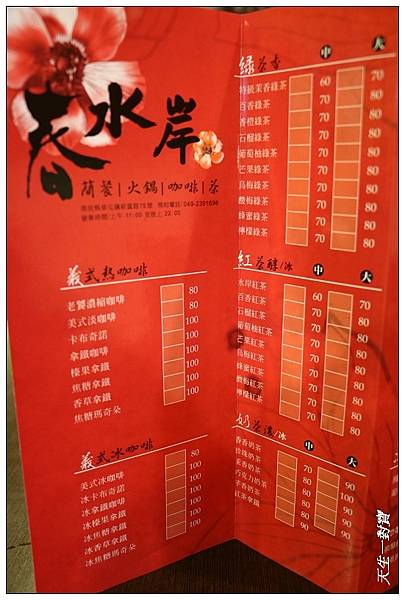 春水岸
簡餐|火鍋|咖啡|茶
營業時間/上午 11:00 至晚上 22:00
義式熱咖啡
老饕濃縮咖啡 80
美式淡咖啡 80
卡布奇諾 100
拿鐵咖啡 100
榛果拿鐵 100
焦糖拿鐵 100
香草拿鐵 100
焦糖瑪奇朵 100
義式冰咖啡
美式冰咖啡 80
冰卡布奇諾 100
冰拿鐵咖啡 100
冰榛果拿鐵 100
冰焦糖拿鐵 100
冰香草拿鐵 100
冰焦糖瑪奇朵 100
綠茶香 中 大
特級茉香綠茶 60 70
百香綠茶 70 80
香橙綠茶 70 80
石榴綠茶 70 80
葡萄柚綠茶 70 80
芒果綠茶 70 80
烏梅綠茶 70 80
酸梅綠茶 70 80
蜂蜜綠茶 70 80
檸檬綠茶 70 80
紅茶醇/冰 中 大
水岸紅茶 60 70
百香紅茶 70 80
石榴紅茶 70 80
葡萄柚紅茶 70 80
芒果紅茶 70 80
烏梅紅茶 70 80
蜂蜜紅茶 70 80
酸梅紅茶 70 80
檸檬紅茶 70 80
奶茶濃/冰 中 大
香香奶茶
珍珠奶茶
蜜香奶茶
巧克力奶茶
芋香奶茶
紅茶拿鐵
天生一對寶